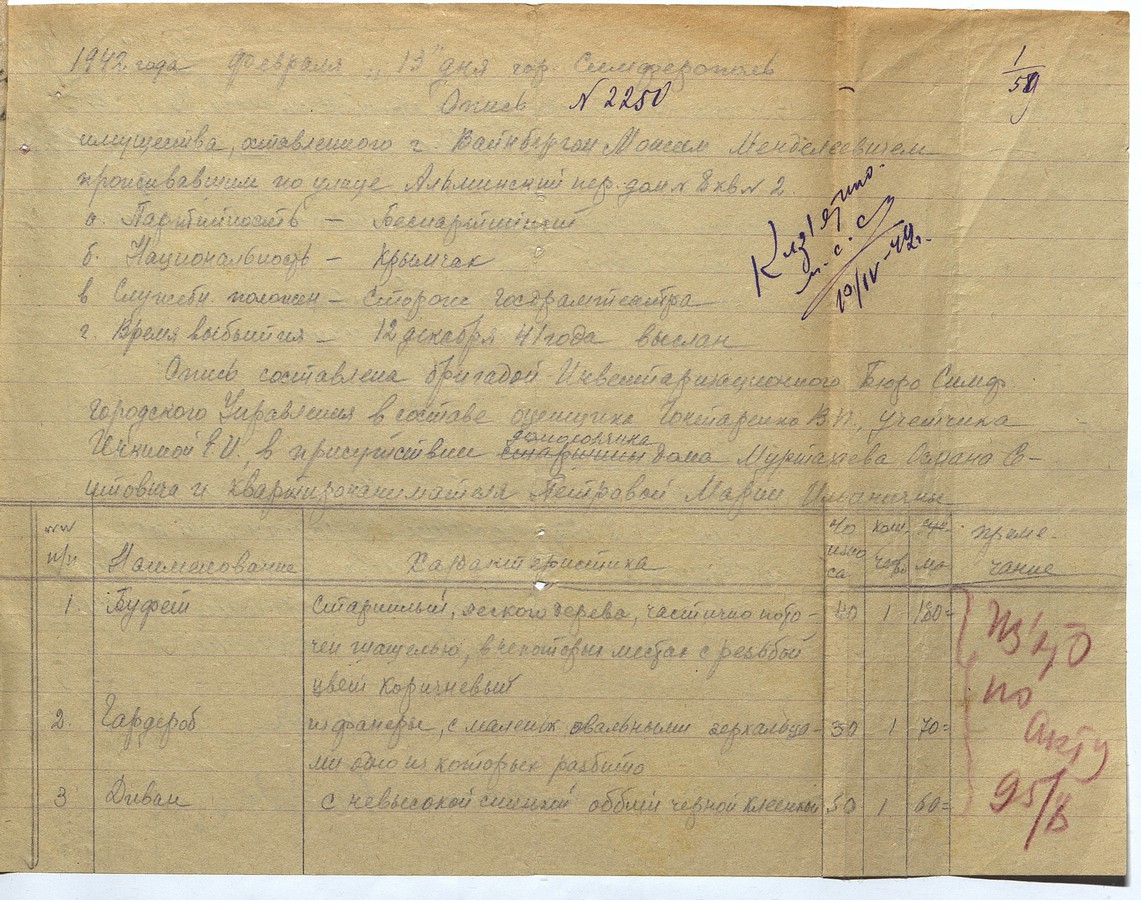 1942 года февраля „13" дня гор. Симферополь
1/59
Опись N 2250
имущества, оставленного г. Вайнбергом Моисеем Менделеевичем
проживавшим по улице Альминский пер. дом N 8 кв N 2.
а. Партийность – Беспартийный
б. Национальность – Крымчак
в Служебн. положен – Сторож Госдрамтеатра
г. Время выбытия – 12 декабря 41 года выслан
10/IV-42г.
Опись составлена бригадой Инвентаризационного Бюро Симф.
городского Управления в составе оценщика Гонтаренко В.П., учетчика
в присутствии старшины домовладчика дома Муртазаева Османа Се-
итовича и квартиронанимателя Петровой Марии
NN п/п
Наименование
Характеристика
% износа
коли. чество
сумма
приме-
чание
1. Буфет старинный, легкого дерева, частично пото- 40 1 180=
чен шашелью, в некоторых местах с резьбой
цвет коричневый
2. Гардероб из фанеры, с маленьк овальными зеркальца- 30 1 70=
ми одно из которых разбито
3 Диван с невысокой спинкой оббит черной клеенкой 50 1 60=
Из'ято
по
акту
95/